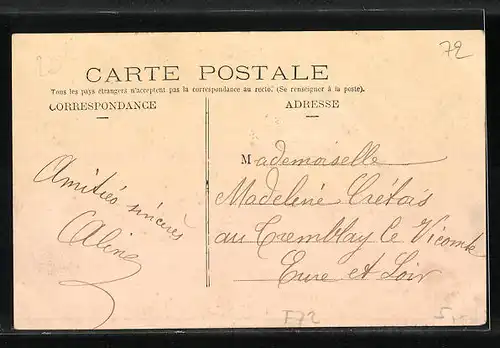 72
CARTE POSTALE
Tous les pays étrangers n'acceptent pas la correspondance au recto. (Se renseigner à la poste).
CORRESPONDANCE
ADRESSE
Amitiés sincères
Aline
Mademoiselle
Madeleine Crétois
au Tremblay le Vicomte
Eure et Loir
F72